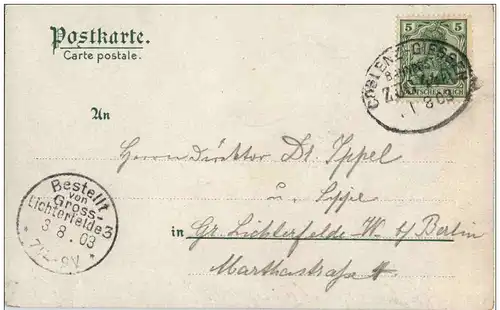 Postkarte.
Carte postale.
5 5
DEUTSCHES REICH
COBLENZ-GIESSEN
BAHNPOST
ZUG
1 8 03
An
Herrn Direktor Dr. Ippel
u.
in Gr. Lichterfelde-W. b/Berlin
Marthastraße
Bestellt
von
Gross-
Lichterfelde 3
3.8.03